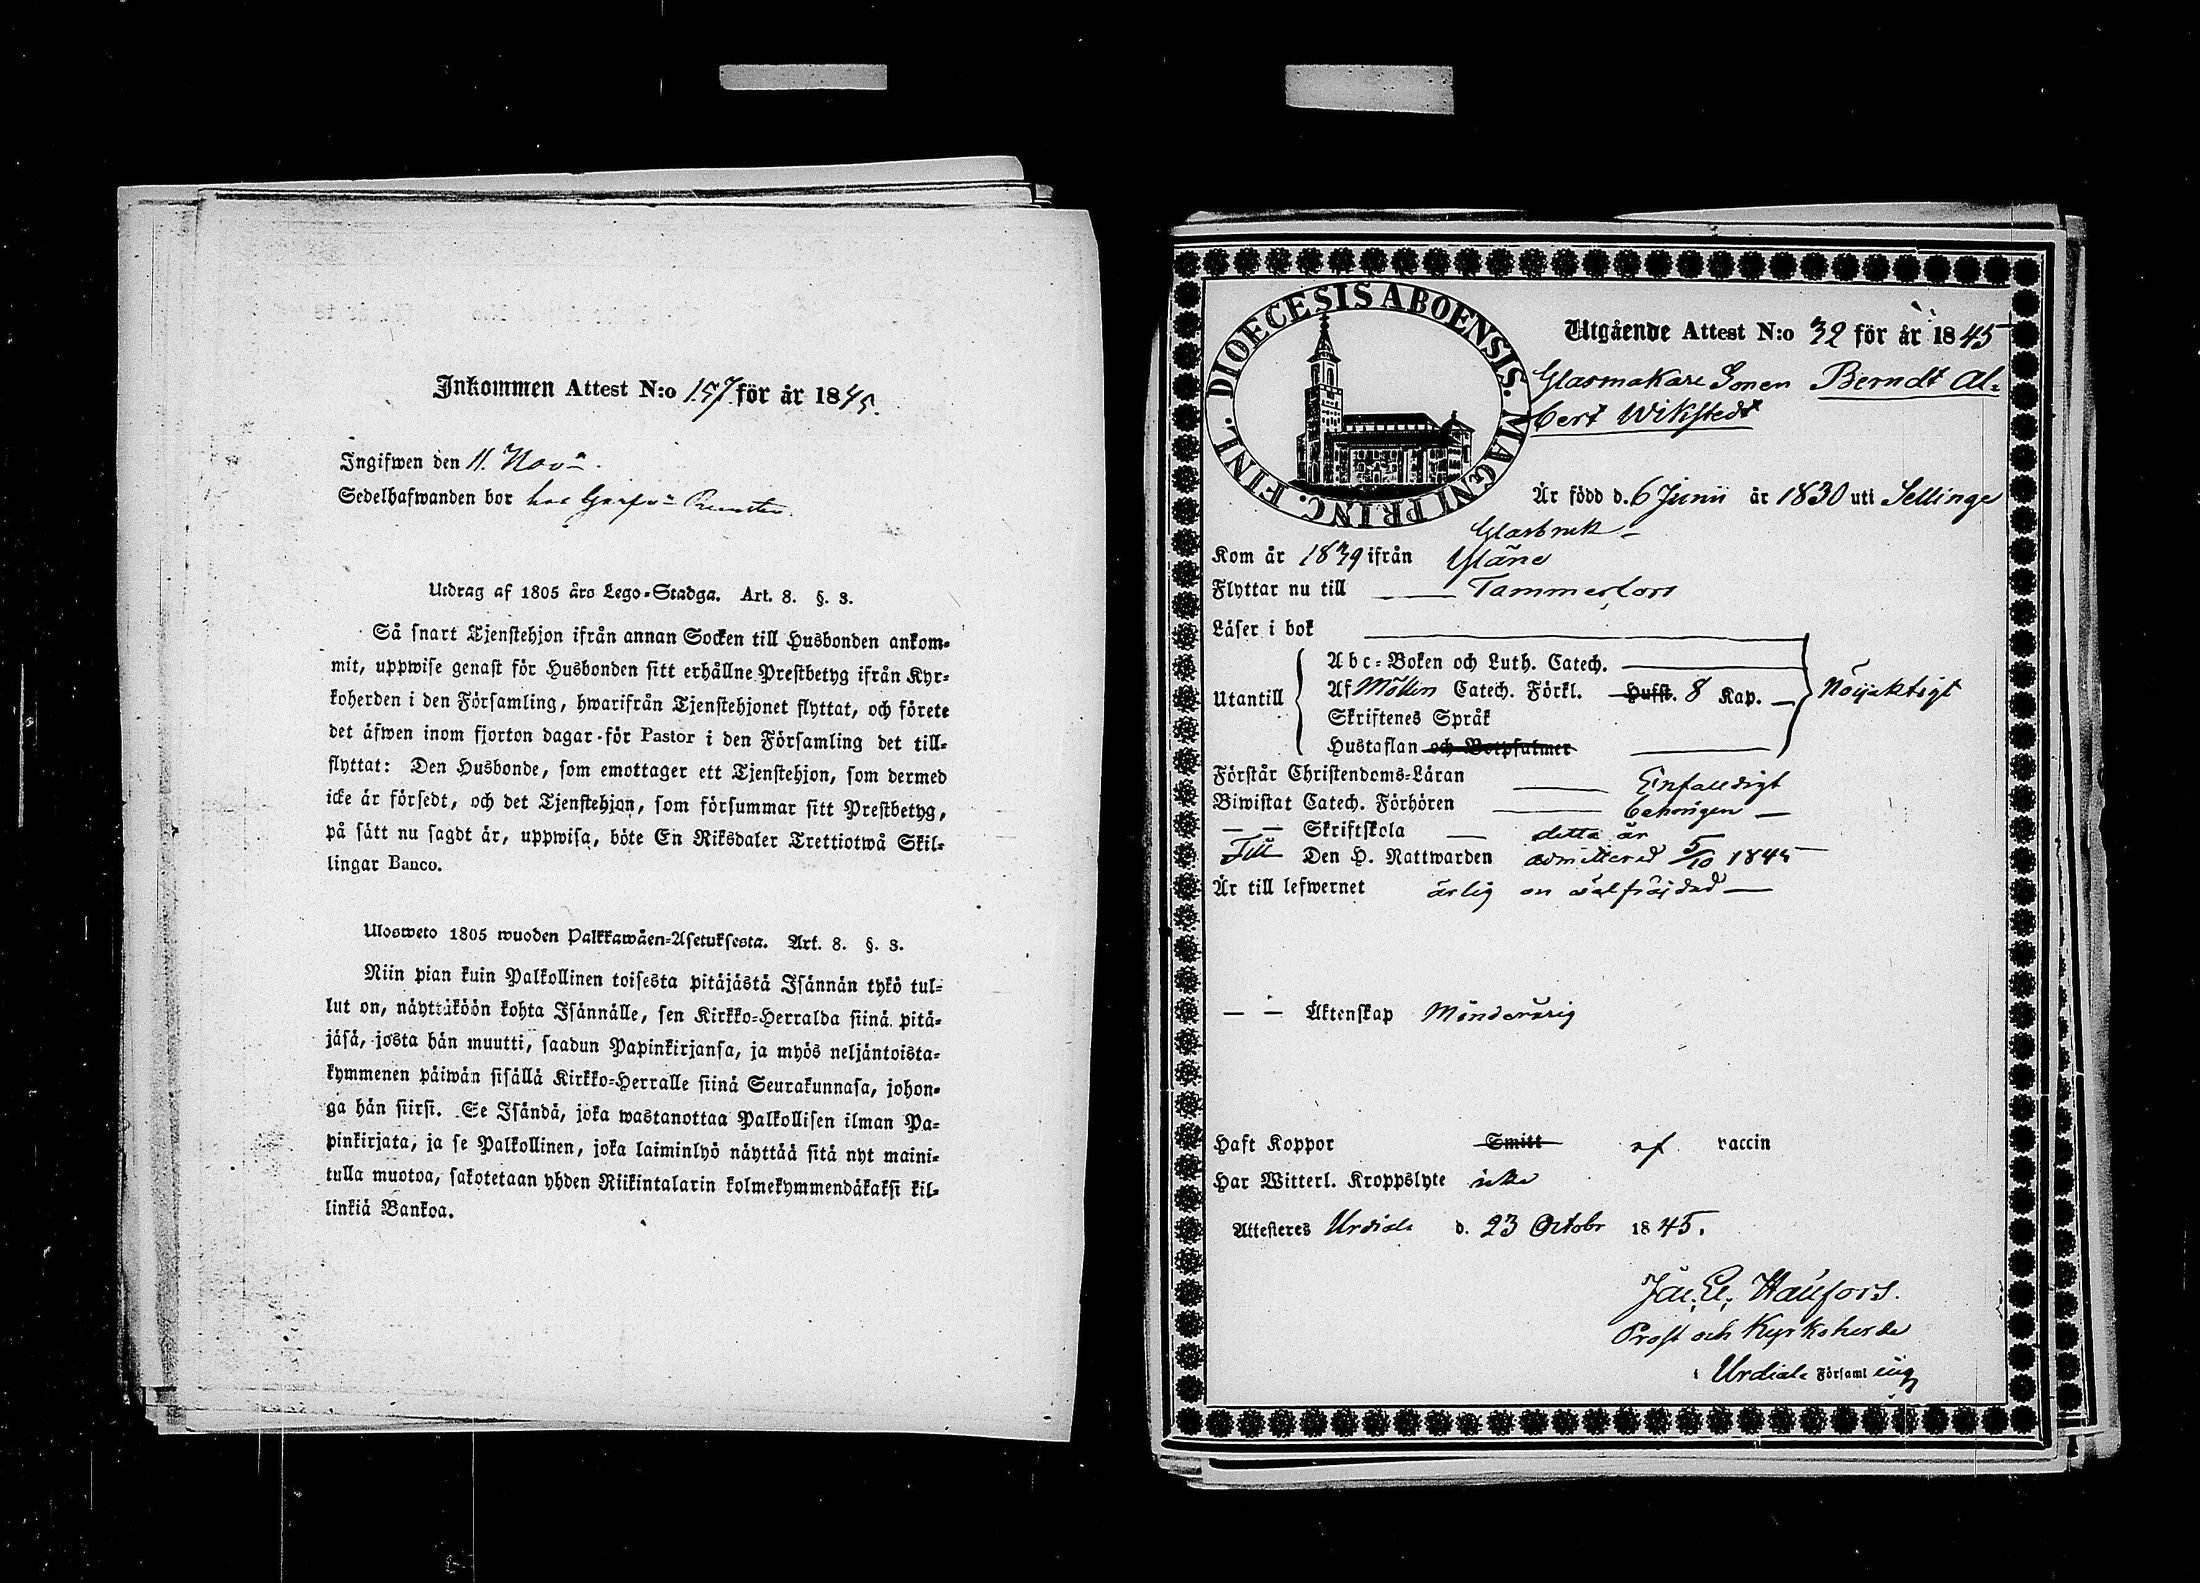 Inkommen Attest N:o 157 för år 1845.
Ingifwen den 11. Nov.
Sedelhafwanden bor hos
Utdrag af 1805 års Lego-Stadga. Art. 8. §. 3.
Så snart Tjenstehjon ifrån annan Socken till Husbonden ankom-
mit, uppwise genast för Husbonden sitt erhållne Prestbetyg ifrån Kyr-
koherden i den Församling, hwarifrån Tjenstehjonet flyttat, och förete
det äfwen inom fjorton dagar för Pastor i den Församling det till-
flyttat: Den Husbonde, som emottager ett Tjenstehjon, som dermed
icke är försedt, och det Tjenstehjon, som försummar sitt Prestbetyg,
på sätt nu sagdt är, uppwisa, böte En Riksdaler Trettiotwå Skil-
lingar Banco.
Ulosweto 1805 wuoden Palkkawäen-Asetuksesta. Art. 8. §. 3.
Niin pian kuin Palkollinen toisesta pitäjästä Isännän tykö tul-
lut on, näyttäköön kohta Isännälle, sen Kirkko-Herralda siinä pitä-
jäsä, josta hän muutti, saadun Papinkirjansa, ja myös neljäntoista-
kymmenen päiwän sisällä Kirkko-Herralle siinä Seurakunnasa, johon-
ga hän siirsi. Se Isändä, joka wastanottaa Palkollisen ilman Pa-
pinkirjata, ja se Palkollinen, joka laiminlyö näyttää sitä nyt maini-
tulla muotoa, sakotetaan yhden Riikintalarin kolmekymmendäkaksi kil-
linkiä Bankoa.
DIOECESIS ABOENSIS. MAGNI PRINC. FINL.
Utgående Attest N:o 32 för år 1845
Glasmakare Sonen Berndt Al-
bert Wikstedt
Är född d. 6 Junii år 1830 uti Sellinge
Glasbruk
Kom år 1839 ifrån Yläne
Flyttar nu till Tammerfors
Läser i bok
Abc-Boken och Luth. Catech.
Utantill Af Möllen Catech. Förkl. Hufst. 8 Kap. Nöijaktigt
Skriftenes Språk
Hustaflan och Botpsalmer
Förstår Christendoms-Läran Enfalldigt
Biwistat Catech. Förhören behörigen
— — Skriftskola detta år
Till Den H. Nattwarden admitterad 5/10 1845
Är till lefwernet ärlig on wälfräjdad
— — Äktenskap Minderårig
Haft Koppor Smitt af vaccin
Har Witterl. Kroppslyte icke
Attesteres Urdiala d. 23 Octobr 1845.
Prost och Kyrkoherde
i Urdiala Församling